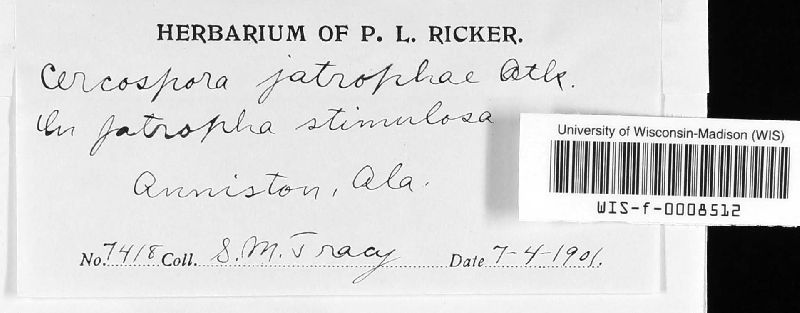 HERBARIUM OF P. L. RICKER.
Cercospora jatrophae Atk.
On Jatropha stimulosa
Anniston, Ala.
No. 7418 Coll. S. M. Tracy Date 7-4-1901.
University of Wisconsin-Madison (WIS)
WIS-f-0008512